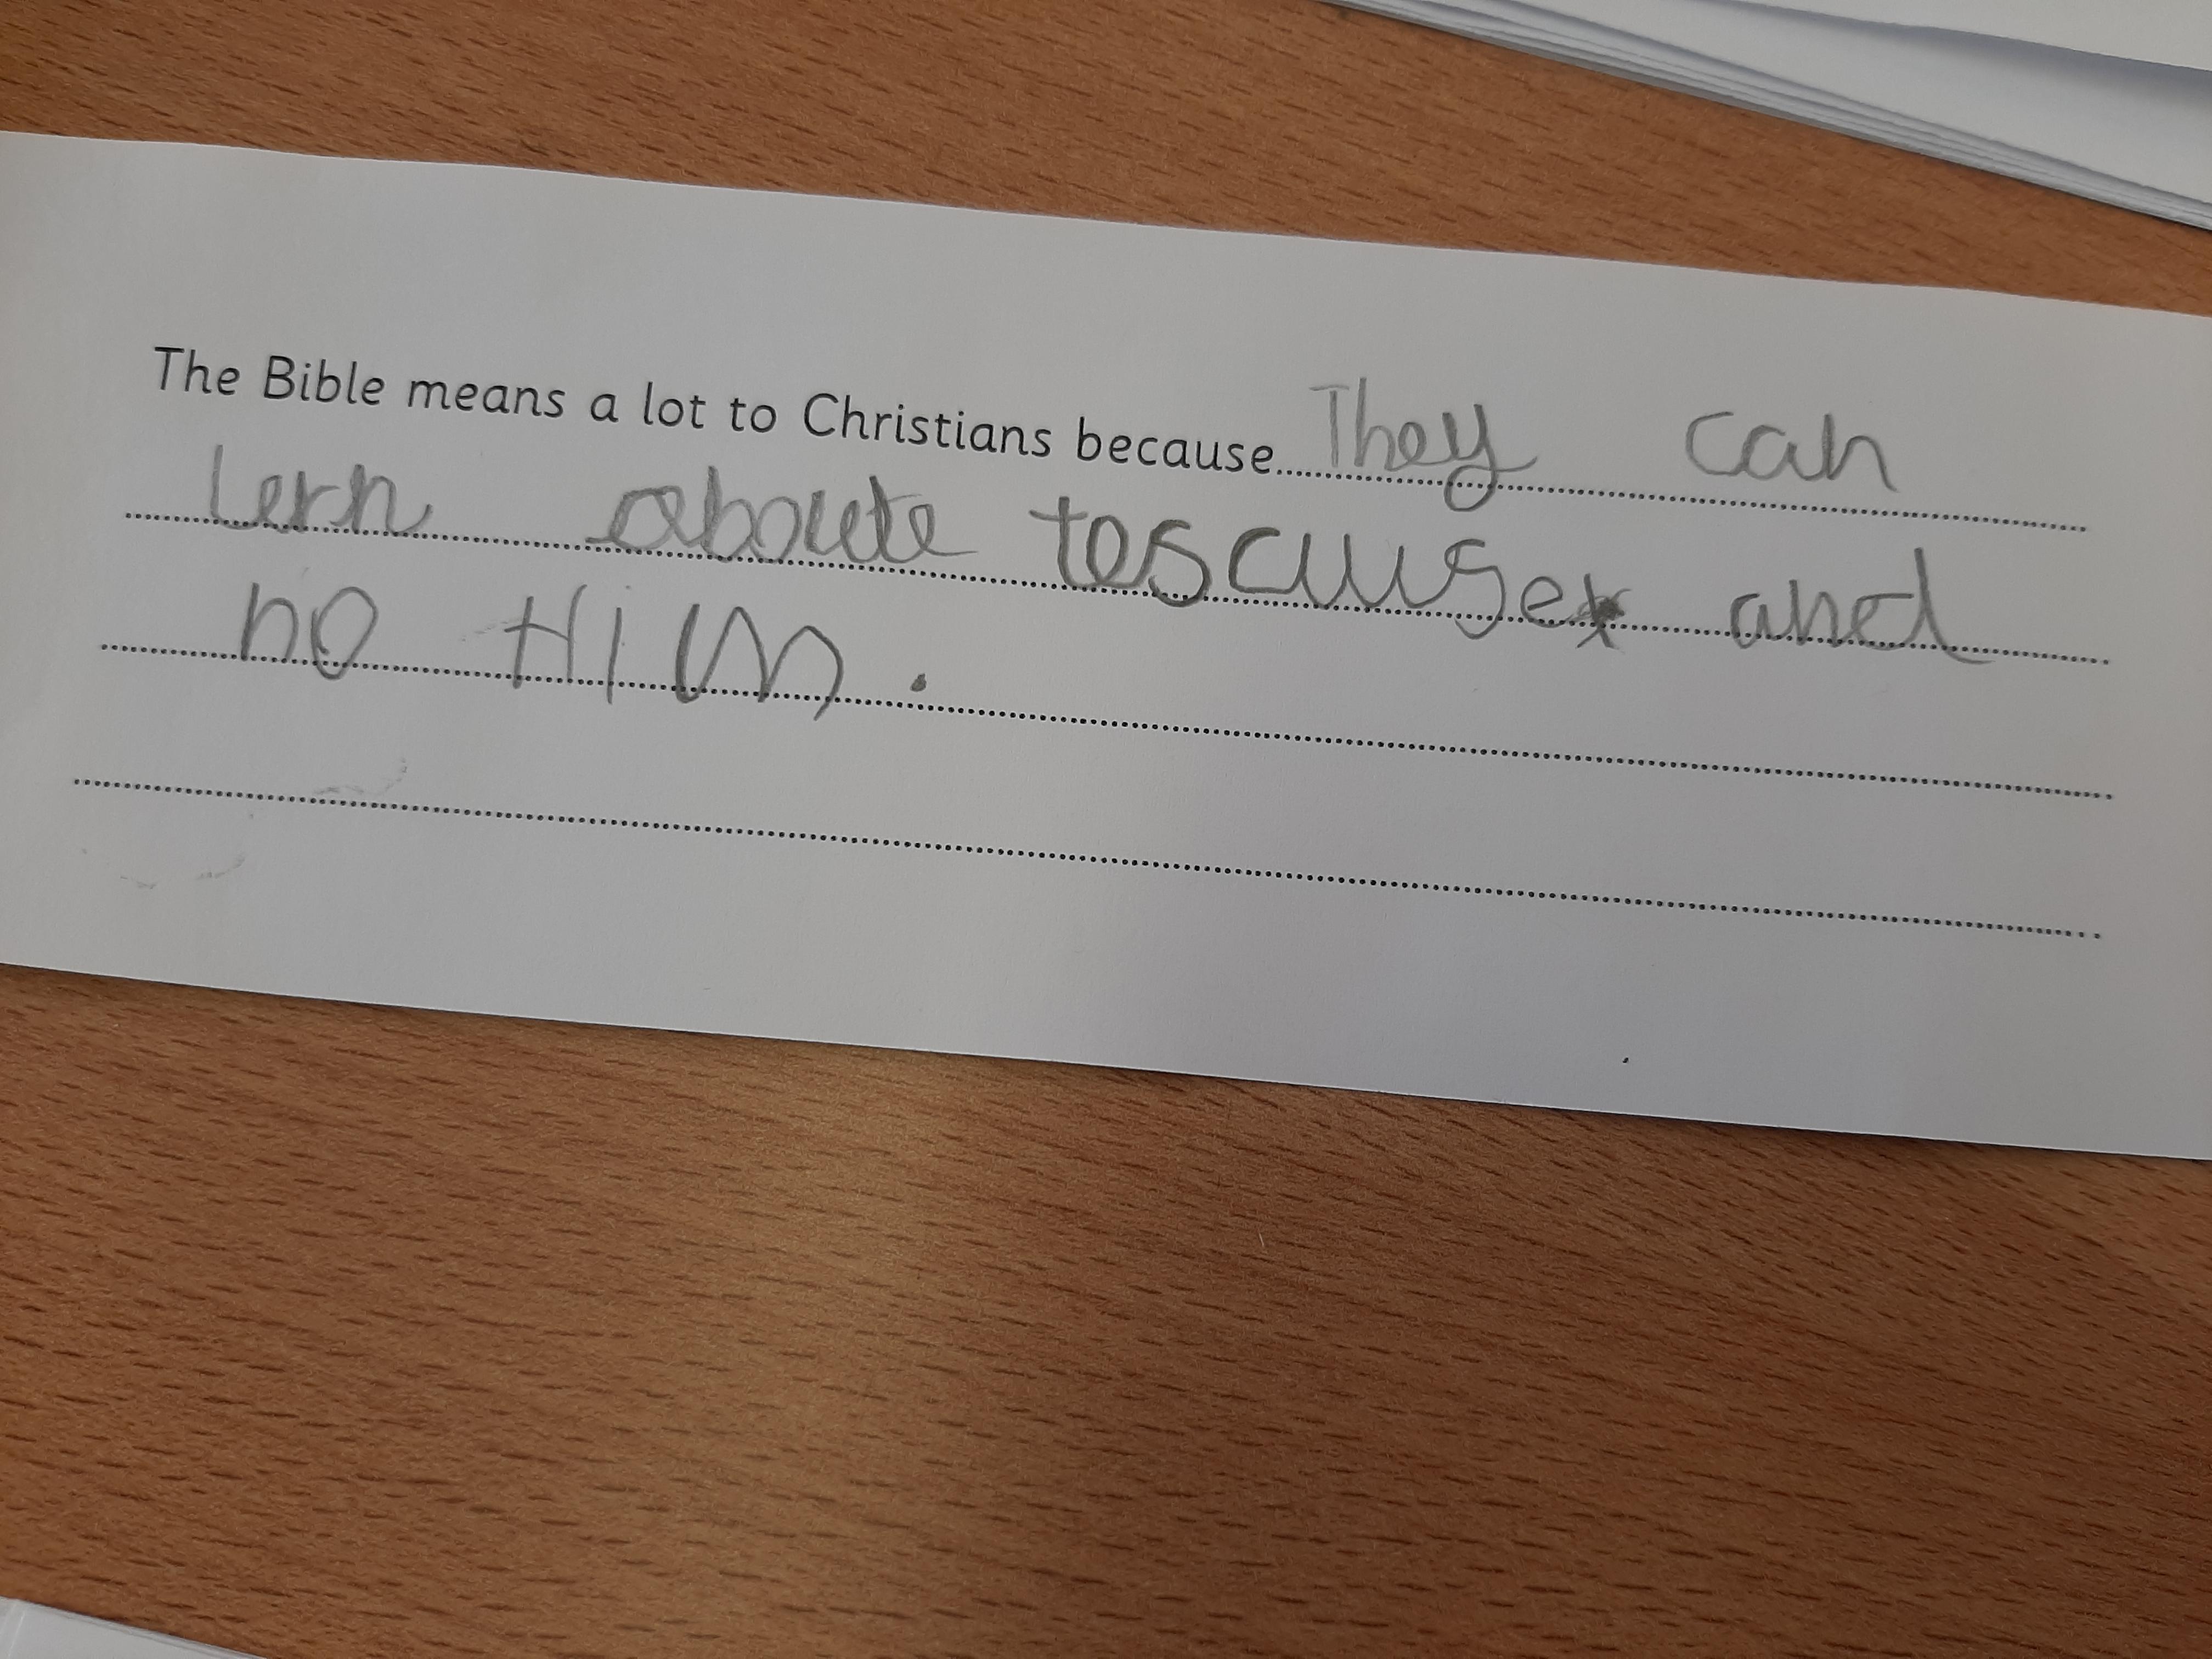 The Bible means a lot to Christians because They can
lern aboute tescuse and
no HiM.